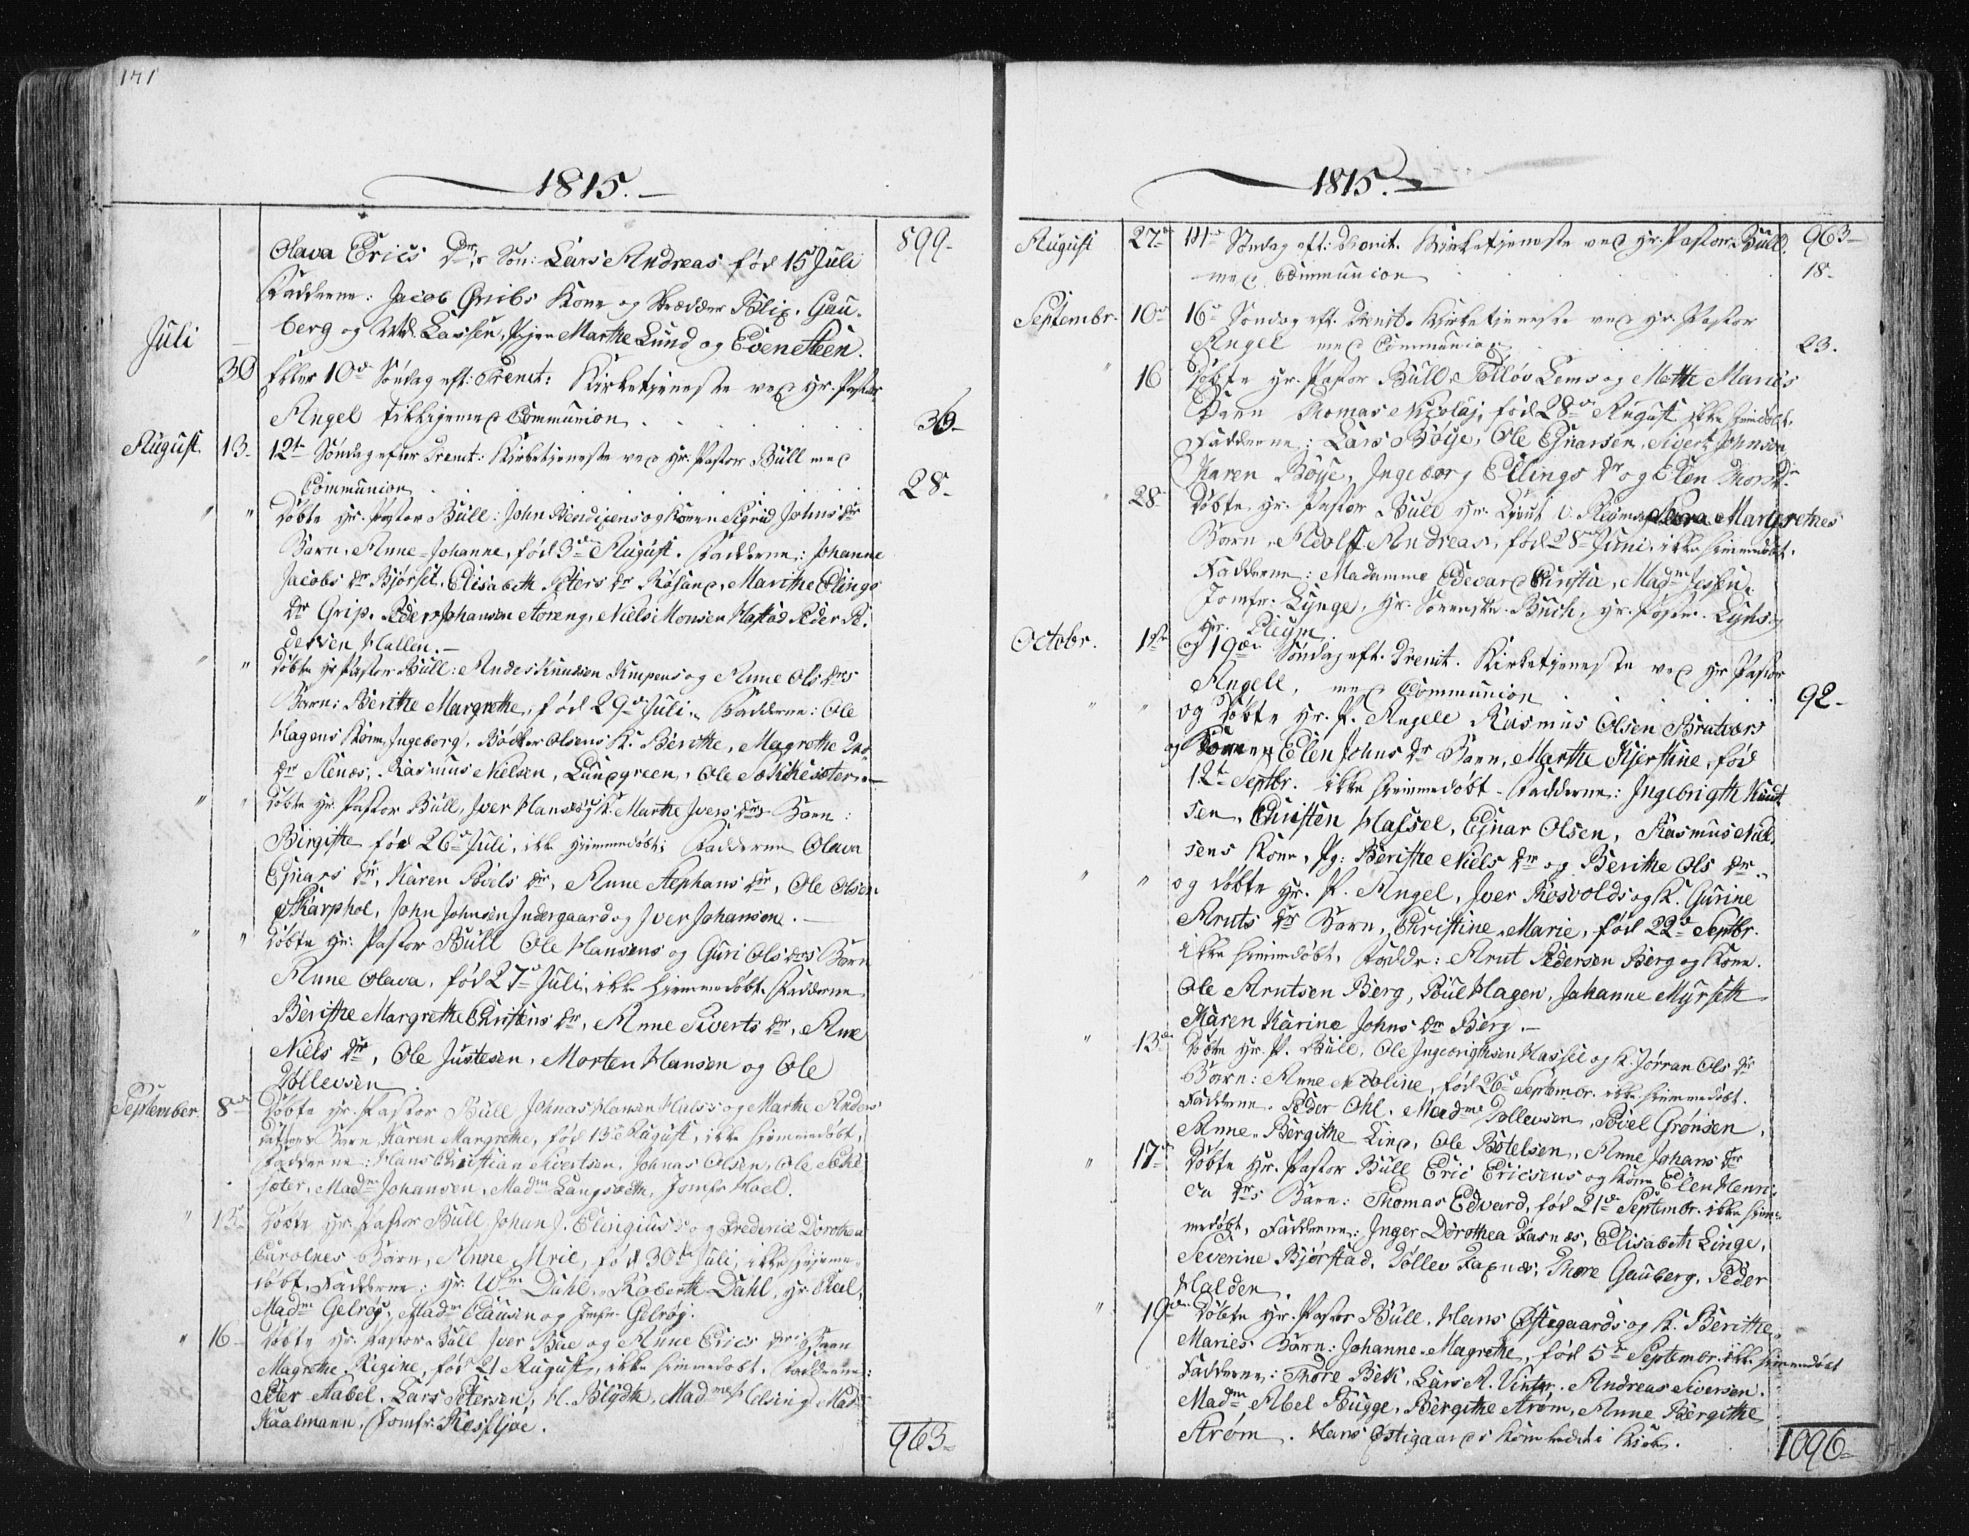 171
1815.
899
Olava Erics Dr. Søn: Lars Andreas fød 15 Juli
Fadderne: Jacob Gribs Kone og Blix, Gau-
berg og Lassen, Marthe Lund og Even Steen.
Juli
30 10de Søndag eft: Trenit: Kirketjeneste ved Hr. Pastor
Angel med Communion 36
August 13 12te Søndag efter Trenit: Kirketjeneste ved Hr. Pastor Bull med
Communion 28
" " døbte Hr. Pastor Bull: John Bendixens og Konen Sigrid Johns dr
Barn, Anne Johanne, fød 3de August. Fadderne: Johanne
Jacobs dr Bjørset, Elisabeth Peters dr Røsand, Marithe Elings
dr Grip, Peder Johansen Storeng, Niels Monsen Hastad Peder Pe-
dersen Hallen.
" " døbte Hr Pastor Bull: Anders Knudsen og Anne Ols drs
Barn: Berithe Margrethe, fød 29de Juli. Fadderne: Ole
Hagens Kone, Ingeborg, Olsens K. Berithe, Magrethe
dr Stenæs, Rasmus Nielsen, Lundgreen, Ole
" " døbte Hr. Pastor Bull, Iver Hansens og K. Marthe Ivers drs Barn:
Birgitte fød 26de Juli, ikke hjemmedøbt; Fadderne Olava
Ejnars dr, Karen Povels dr, Anne Stephans dr, Ole Olsen
Skarphol, John Johnsen Indergaard og Iver Johansen.
" " døbte Hr. Pastor Bull Ole Hansens og Guri Ols drs Barn
Anne Olava, fød 27de Juli, ikke hjemmedøbt. Fadderne
Berithe Margrethe Christens dr, Anne Siverts dr, Ane
Niels dr, Ole Justesen, Morten Hansen og Ole
Tollevsen.
September 8de døbte Hr. Pastor Bull Johnas Hansen og Marthe Anders
datters Barn, Karen Margrethe, fød 13de August, ikke hjemmedøbt,
Fadderne: Hans Christian Sivertsen, Johnas Olsen, Ole
sæter, Madm Johansen, Madm Langseth, Jomfr Hoel.
" døbte Hr. Pastor Bull Johan J. Elingius og Frederica Dorothea
Carolines Barn, Anne fød 30te Juli, ikke hjemme-
døbt, Fadderne: Hr. Wm Dahl, Roberth Dahl, Hr.
Madm Gelrøg, Madm Clausen og Jmfr. Gelrøg.
" 16 døbte Hr. Pastor Bull Iver Bue og Anne Erics drs Barn
Magrethe Regine, fød 21 August, ikke hjemmedøbt. Fadderne:
Peter Aabel, Lars Petersen, H. Blydth, Madme Helsing Madm
Kaalmann, Jomfr.
963
1815.
August 27de 14de Søndag eft: Trenit. Kirketjeneste ved Hr. Pastor Bull. 963
med Communion 18
Septembr. 10de 16de Søndag eft. Trenit. Kirketjeneste ved Hr. Pastor
Angel med Communion 23.
" 16 døbte Hr. Pastor Bull Tolløv Lems og Mette Maries
Barn Thomas Nicolaj, fød 28de August ikke hjemdøbt.
Fadderne: Lars Bøye, Ole Ejnarsen, Sivert Johnsen
Karen Bøye, Ingeborg Ellings dr og Elen Thors dr.
" 28 døbte Hr. Pastor Bull Hr. Lieut v. Margrethes
Barn Adolf Andreas, fød 28de Juni, ikke hjemmedøbt.
Fadderne: Madamme Edevard Christie, Madm Jessen,
Jomfr: Lynge, Hr. Buch, Hr. Lyhs.
Hr. Pleym
Octobr. 1ste og 19de Søndag eft. Trenit. Kirketjeneste ved Hr Pastor
Angell, med Communion 92
" " og døbte Hr. P. Angell Rasmus Olsen Bratvors
og Konen Elen Johns dr Barn, Marthe Kjerstine, fød
12te Septbr. ikke hjemmedøbt. Fadderne: Ingebrigth Knut-
sen, Christen Hassel, Ejnar Olsen, Rasmus Niel-
sens Kone, Pg: Berithe Niels dr og Berithe Ols dr.
" " og døbte Hr. P. Angel, Iver Rosvolds og K. Gurine
Arnts dr Barn, Christine Marie, fød 22de Septbr.
ikke hjemmedøbt, Faddr: Arnt Pedersen Berg og Kone.
Ole Arntsen Berg, Poul Hagen, Johanne Myrseth
Maren Karine Johns dr Berg.
" 13de døbte Hr. P. Bull, Ole Ingebrigthsen Hassel og K. Jørran Ols dr
Barn: Anne Nicoline, fød 26de Septembr. ikke hjemmedøbt.
Fadderne. Peder Ohl, Madme Tollevsen, Povel Grønsen,
Anne Bergithe Lind, Ole Botelsen, Anne Johans dr
" 17de døbte Hr. Pastor Bull Eric Ericsens og Kone Elen Henri-
ca drs Barn: Thomas Edvard, fød 21de Septembr. ikke hjem-
medøbt, Fadderne: Inger Dorothea Fasnæs, Elisabeth Linge,
Severine Bjørstad, Tollev Faxnæs, Thore Gauberg, Peder
Halden.
" 19de døbte Hr. Pastor Bull, Hans Østegaards og K. Berithe
Maries Barn: Johanne Magrethe, fød 5te Septembr. ikke hjemmedøbt
Fadderne: Thore Bek, Lars A. Vinter, Andreas Siversen.
Madm Abel Bugge, Bergithe Strøm, Anne Bergithe
Strøm. Hans Østigaards Kone i Kirke.
1096